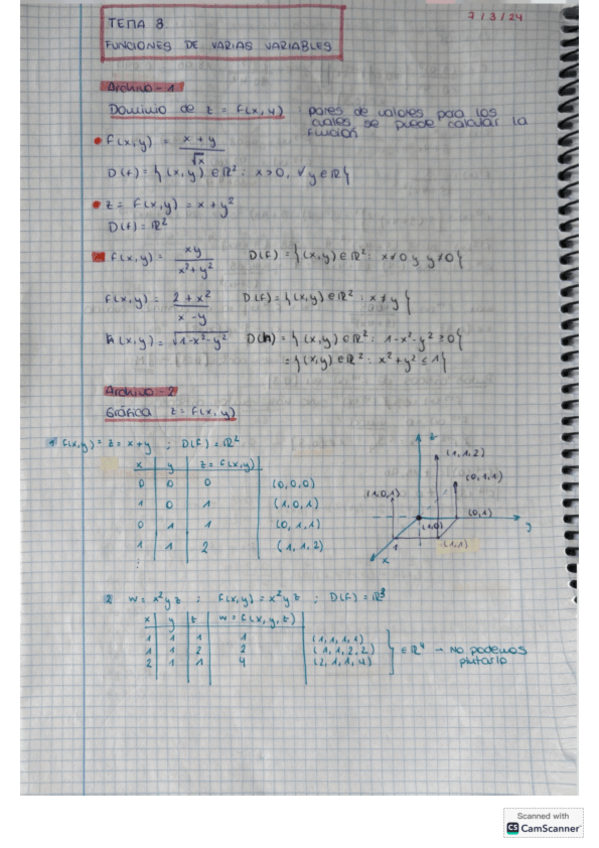 7/3/24
TEMA 8
FUNCIONES DE VARIAS VARIABLES
Archivo - 1
Dominio de z = f(x,y) : pares de valores para los
cuales se puede calcular la
función
f(x,y) = x + y / √x
D(f) = {(x,y) ∈ ℝ² : x>0, ∀y∈ℝ}
z = f(x,y) = x + y²
D(f) = ℝ²
f(x,y) = xy / x²+y² D(f) = {(x,y) ∈ ℝ² : x≠0 y y≠0}
f(x,y) = 2 + x² / x - y D(f) = {(x,y) ∈ ℝ² : x ≠ y}
h(x,y) = √1-x²-y² D(h) = {(x,y) ∈ ℝ² : 1-x²-y² ≥ 0}
= {(x,y) ∈ ℝ² : x²+y² ≤ 1}
Archivo - 2
Gráfica z = f(x,y)
1 f(x,y) = z = x+y ; D(f) = ℝ²
x y z = f(x,y)
0 0 0 (0,0,0)
1 0 1 (1,0,1)
0 1 1 (0,1,1)
1 1 2 (1,1,2)
:
z
(1,1,2)
(0,1,1)
(1,0,1)
(0,1)
(1,0)
y
1
(1,1)
x
2 w = x²yz ; f(x,y) = x²yz ; D(f) = ℝ³
x y z w = f(x,y,z)
1 1 1 1 (1,1,1,1)
1 1 2 2 (1,1,2,2) } ∈ ℝ⁴ → No podemos
2 1 1 4 (2,1,1,4) pintarlo
Scanned with
CS CamScanner